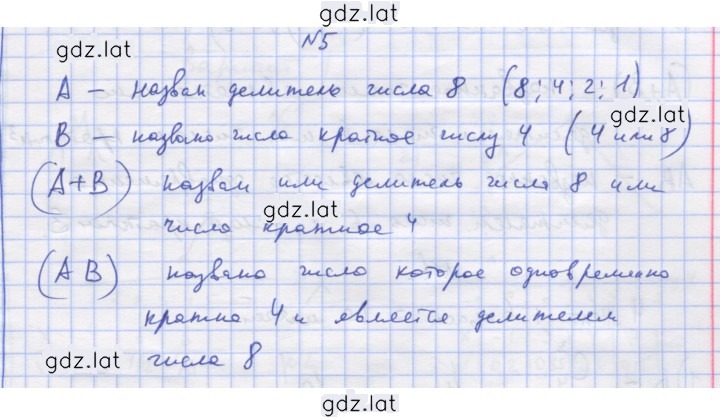 gdz.lat
N5
gdz.lat
A – назван делитель числа 8 (8; 4; 2; 1)
gdz.lat
B – названо число кратное числу 4 (4 или 8)
(A+B) назван или делитель числа 8 или
gdz.lat
число кратное 4
(A B) названо число которое одновременно
кратно 4 и является делителем
gdz.lat числа 8
gdz.lat